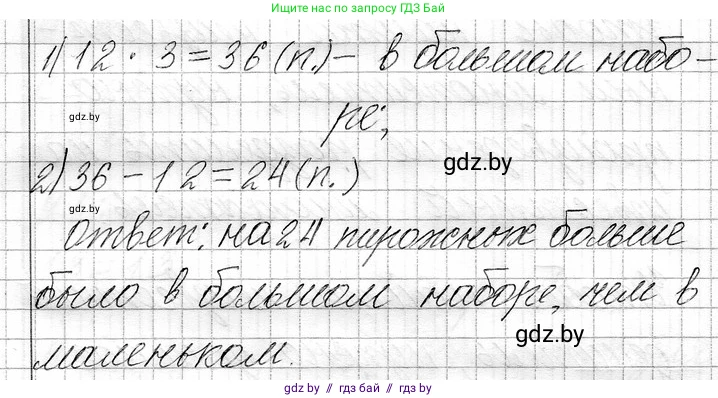 Ищите нас по запросу ГДЗ Бай
1) 12 · 3 = 36 (п.) – в большом набо-
gdz.by
ре;
gdz.by
2) 36 – 12 = 24 (п.)
gdz.by
Ответ: на 24 пирожных больше
было в большом наборе, чем в
gdz.by
маленьком.
gdz.by // гдз бай // gdz.by